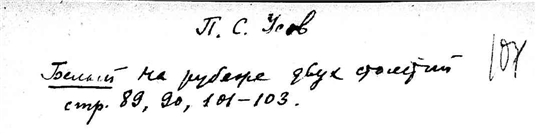 П. С. Усов
Белый на рубеже двух столетий
стр. 89, 90, 101–103.